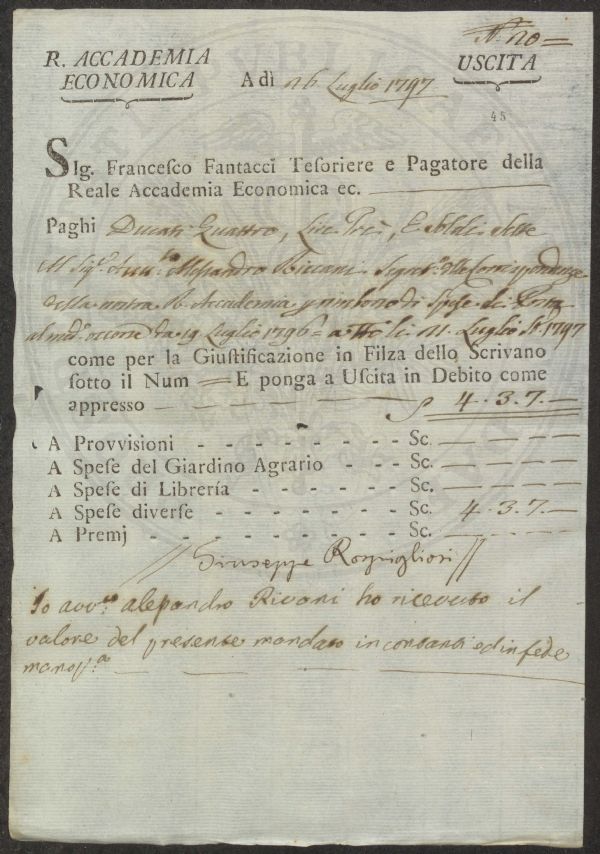 N.° 20
R. ACCADEMIA
ECONOMICA
A dì 26 Luglio 1797
USCITA
45
SIg. Francesco Fantacci Tesoriere e Pagatore della
Reale Accademia Economica ec.
Paghi Ducati Quattro, Lire Tre, E soldi sette
Al Sig.r Avv.to Alessandro Rivani Segret.o delle Corrispondenze
della nostra R. Accademia rimborso di Spese di Posta
al med.o occorse da 19 Luglio 1796 a tto li 11 Luglio St. 1797
come per la Giustificazione in Filza dello Scrivano
sotto il Num E ponga a Uscita in Debito come
appresso 4.3.7.
A Provvisioni Sc.
A Spese del Giardino Agrario Sc.
A Spese di Librería Sc.
A Spese diverse Sc. 4.3.7.
A Premj Sc.
Giuseppe
Io avv.to alessandro Rivani ho ricevuto il
valore del presente mandato in contanti ed in fede
mano pp.a